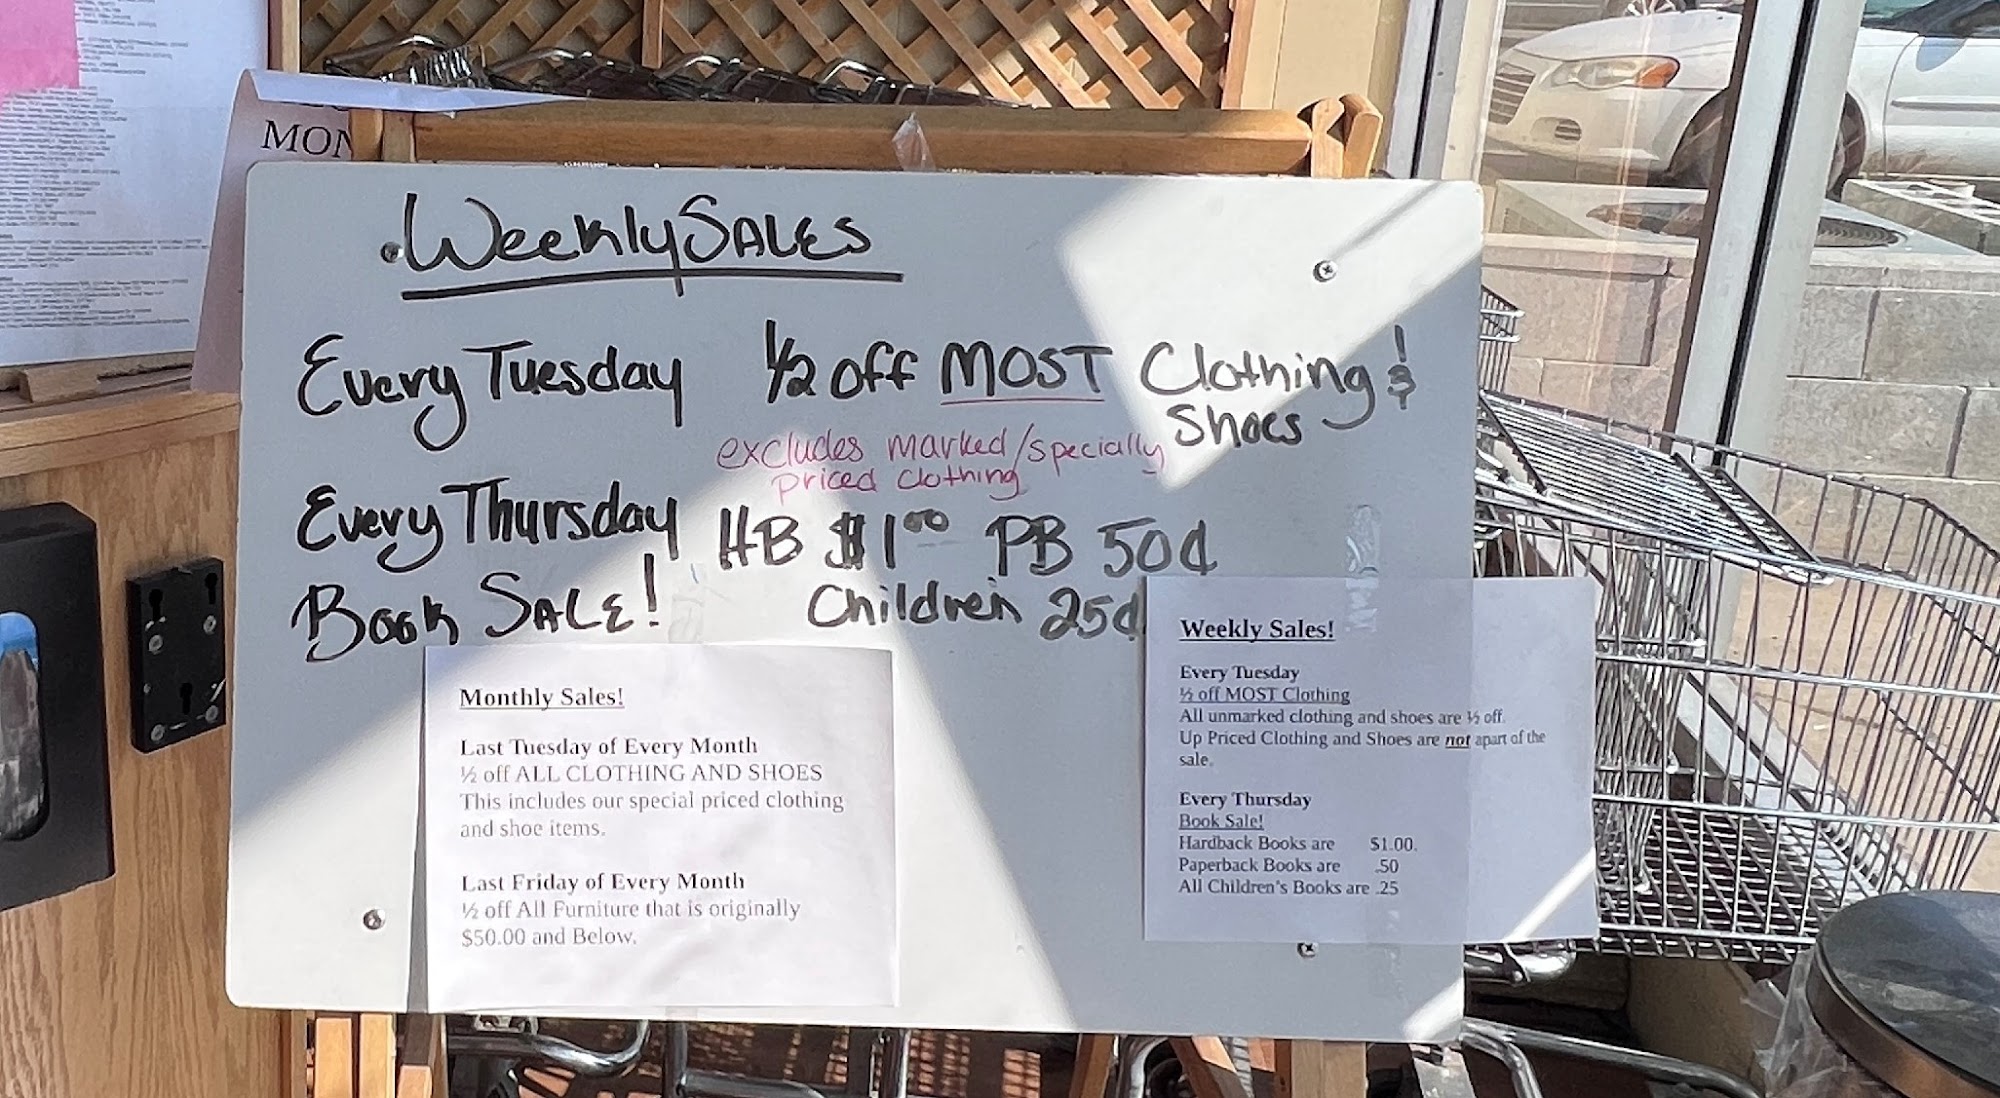 MON
Weekly SALES
Every Tuesday ½ off MOST Clothing &
Shoes
excludes marked/specially
priced clothing
Every Thursday HB $1.00 PB 50¢
Book SALE! Children 25¢
Monthly Sales!
Last Tuesday of Every Month
½ off ALL CLOTHING AND SHOES
This includes our special priced clothing
and shoe items.
Last Friday of Every Month
½ off All Furniture that is originally
$50.00 and Below.
Weekly Sales!
Every Tuesday
½ off MOST Clothing
All unmarked clothing and shoes are ½ off.
Up Priced Clothing and Shoes are not apart of the
sale.
Every Thursday
Book Sale!
Hardback Books are $1.00.
Paperback Books are .50
All Children's Books are .25